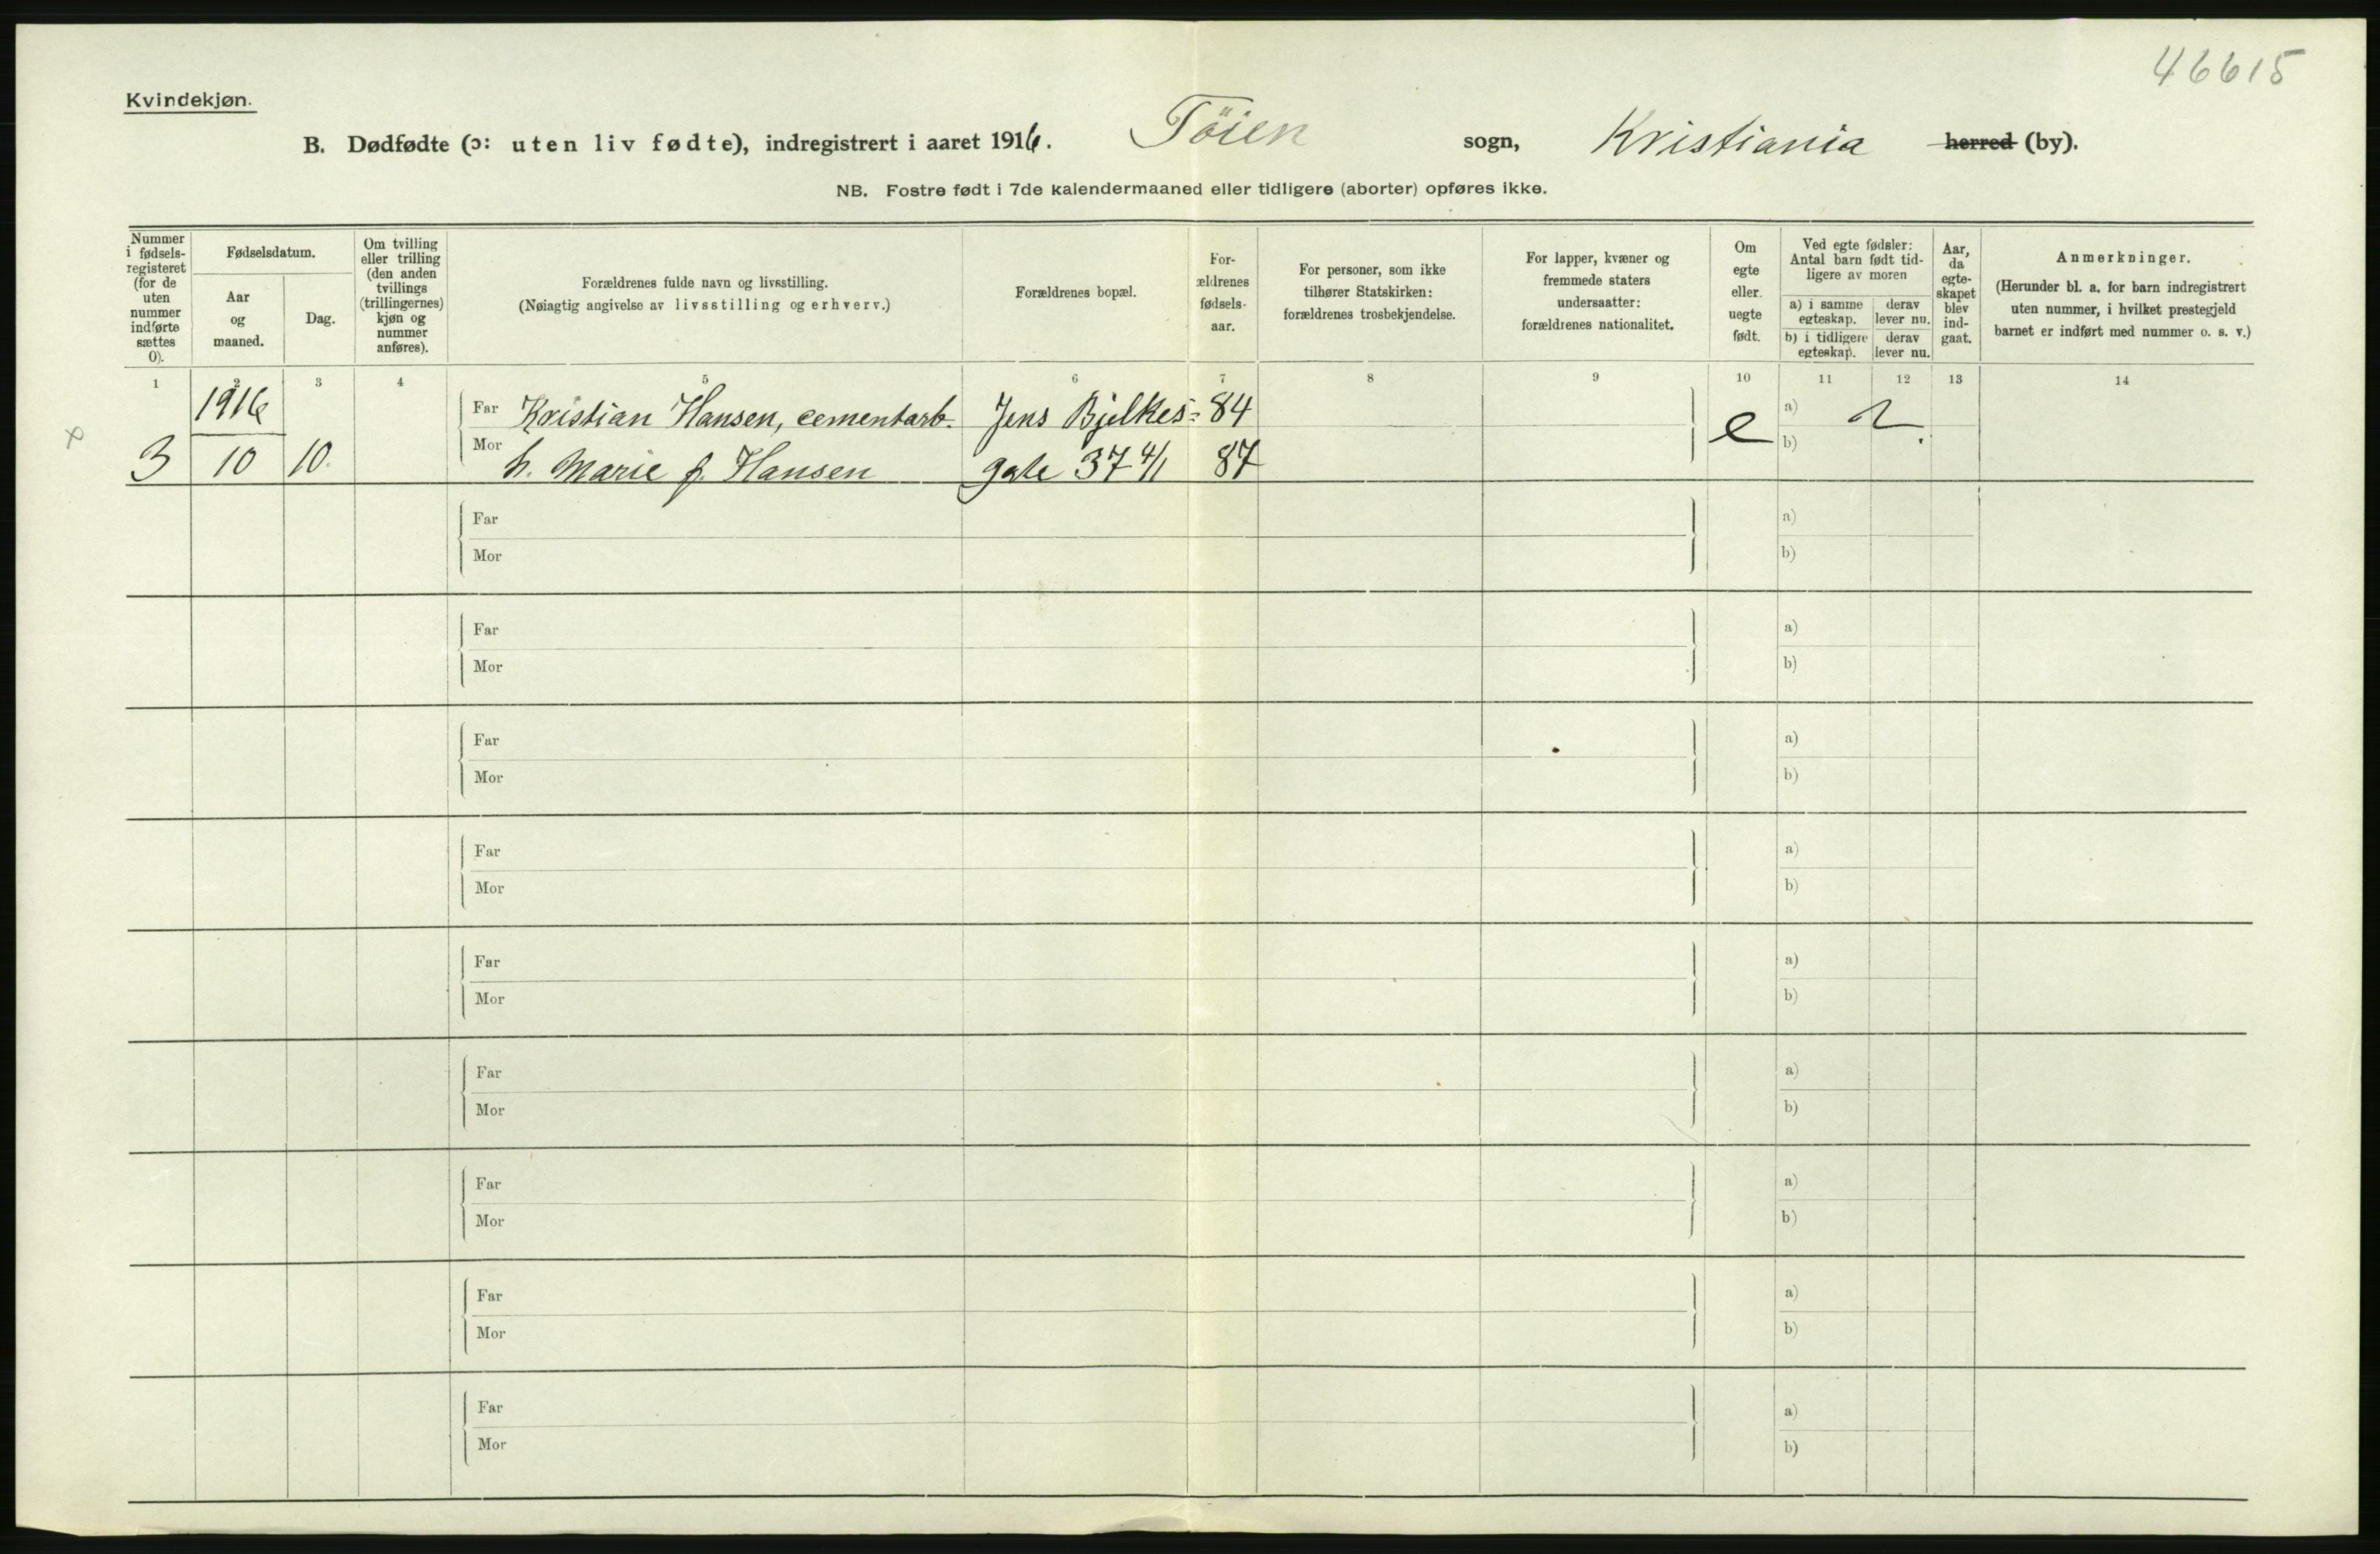 46615
Kvindekjøn.
B. Dødfødte (ɔ: uten liv fødte), indregistrert i aaret 1916. Töien sogn, Kristiania herred (by).
NB. Fostre født i 7de kalendermaaned eller tidligere (aborter) opføres ikke.
Nummer
i fødsels-
registeret
(for de
uten
nummer
indførte
sættes
0).
Fødselsdatum.
Aar
og
maaned.
Dag.
Om tvilling
eller trilling
(den anden
tvillings
(trillingernes)
kjøn og
nummer
anføres).
Forældrenes fulde navn og livsstilling.
(Nøiagtig angivelse av livsstilling og erhverv.)
Forældrenes bopæl.
For-
ældrenes
fødsels-
aar.
For personer, som ikke
tilhører Statskirken:
forældrenes trosbekjendelse.
For lapper, kvæner og
fremmede staters
undersaatter:
forældrenes nationalitet.
Om
egte
eller
uegte
født.
Ved egte fødsler:
Antal barn født tid-
ligere av moren
a) i samme
egteskap.
derav
lever nu.
b) i tidligere
egteskap.
derav
lever nu.
Aar,
da
egte-
skapet
blev
ind-
gaat.
Anmerkninger.
(Herunder bl. a. for barn indregistrert
uten nummer, i hvilket prestegjeld
barnet er indført med nummer o. s. v.)
1 2 3 4 5 6 7 8 9 10 11 12 13 14
1916 Far Kristian Hansen, cementarb. Jens Bjelkes= 84 e a) 2.
3 10 10. Mor h. Marie f. Hansen gate 37 4/1 87 b)
Far a)
Mor b)
Far a)
Mor b)
Far a)
Mor b)
Far a)
Mor b)
Far a)
Mor b)
Far a)
Mor b)
Far a)
Mor b)
Far a)
Mor b)
Far a)
Mor b)